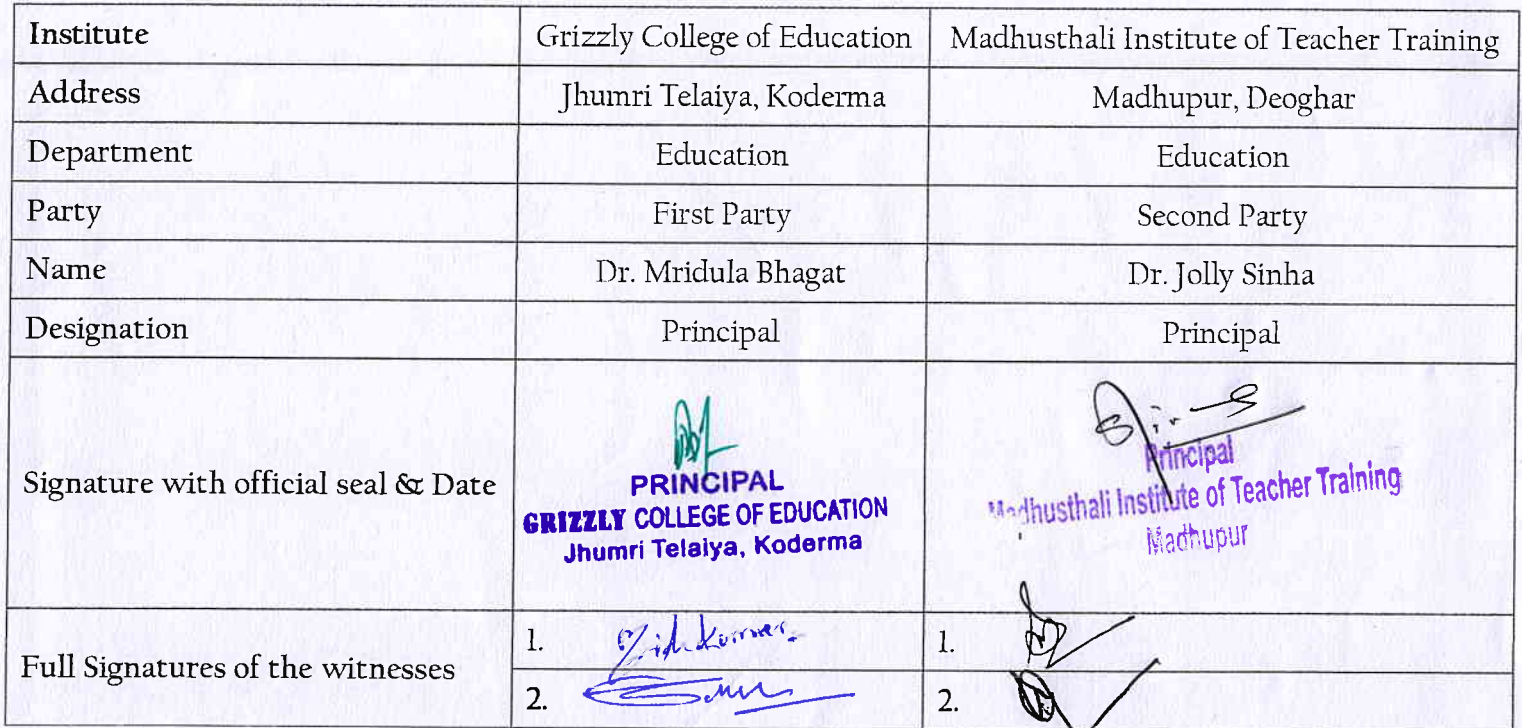 Institute Grizzly College of Education Madhusthali Institute of Teacher Training
Address Jhumri Telaiya, Koderma Madhupur, Deoghar
Department Education Education
Party First Party Second Party
Name Dr. Mridula Bhagat Dr. Jolly Sinha
Designation Principal Principal
Signature with official seal & Date
PRINCIPAL
GRIZZLY COLLEGE OF EDUCATION
Jhumri Telaiya, Koderma
Principal
Madhusthali Institute of Teacher Training
Madhupur
Full Signatures of the witnesses
1. Kumar
2.
1.
2.